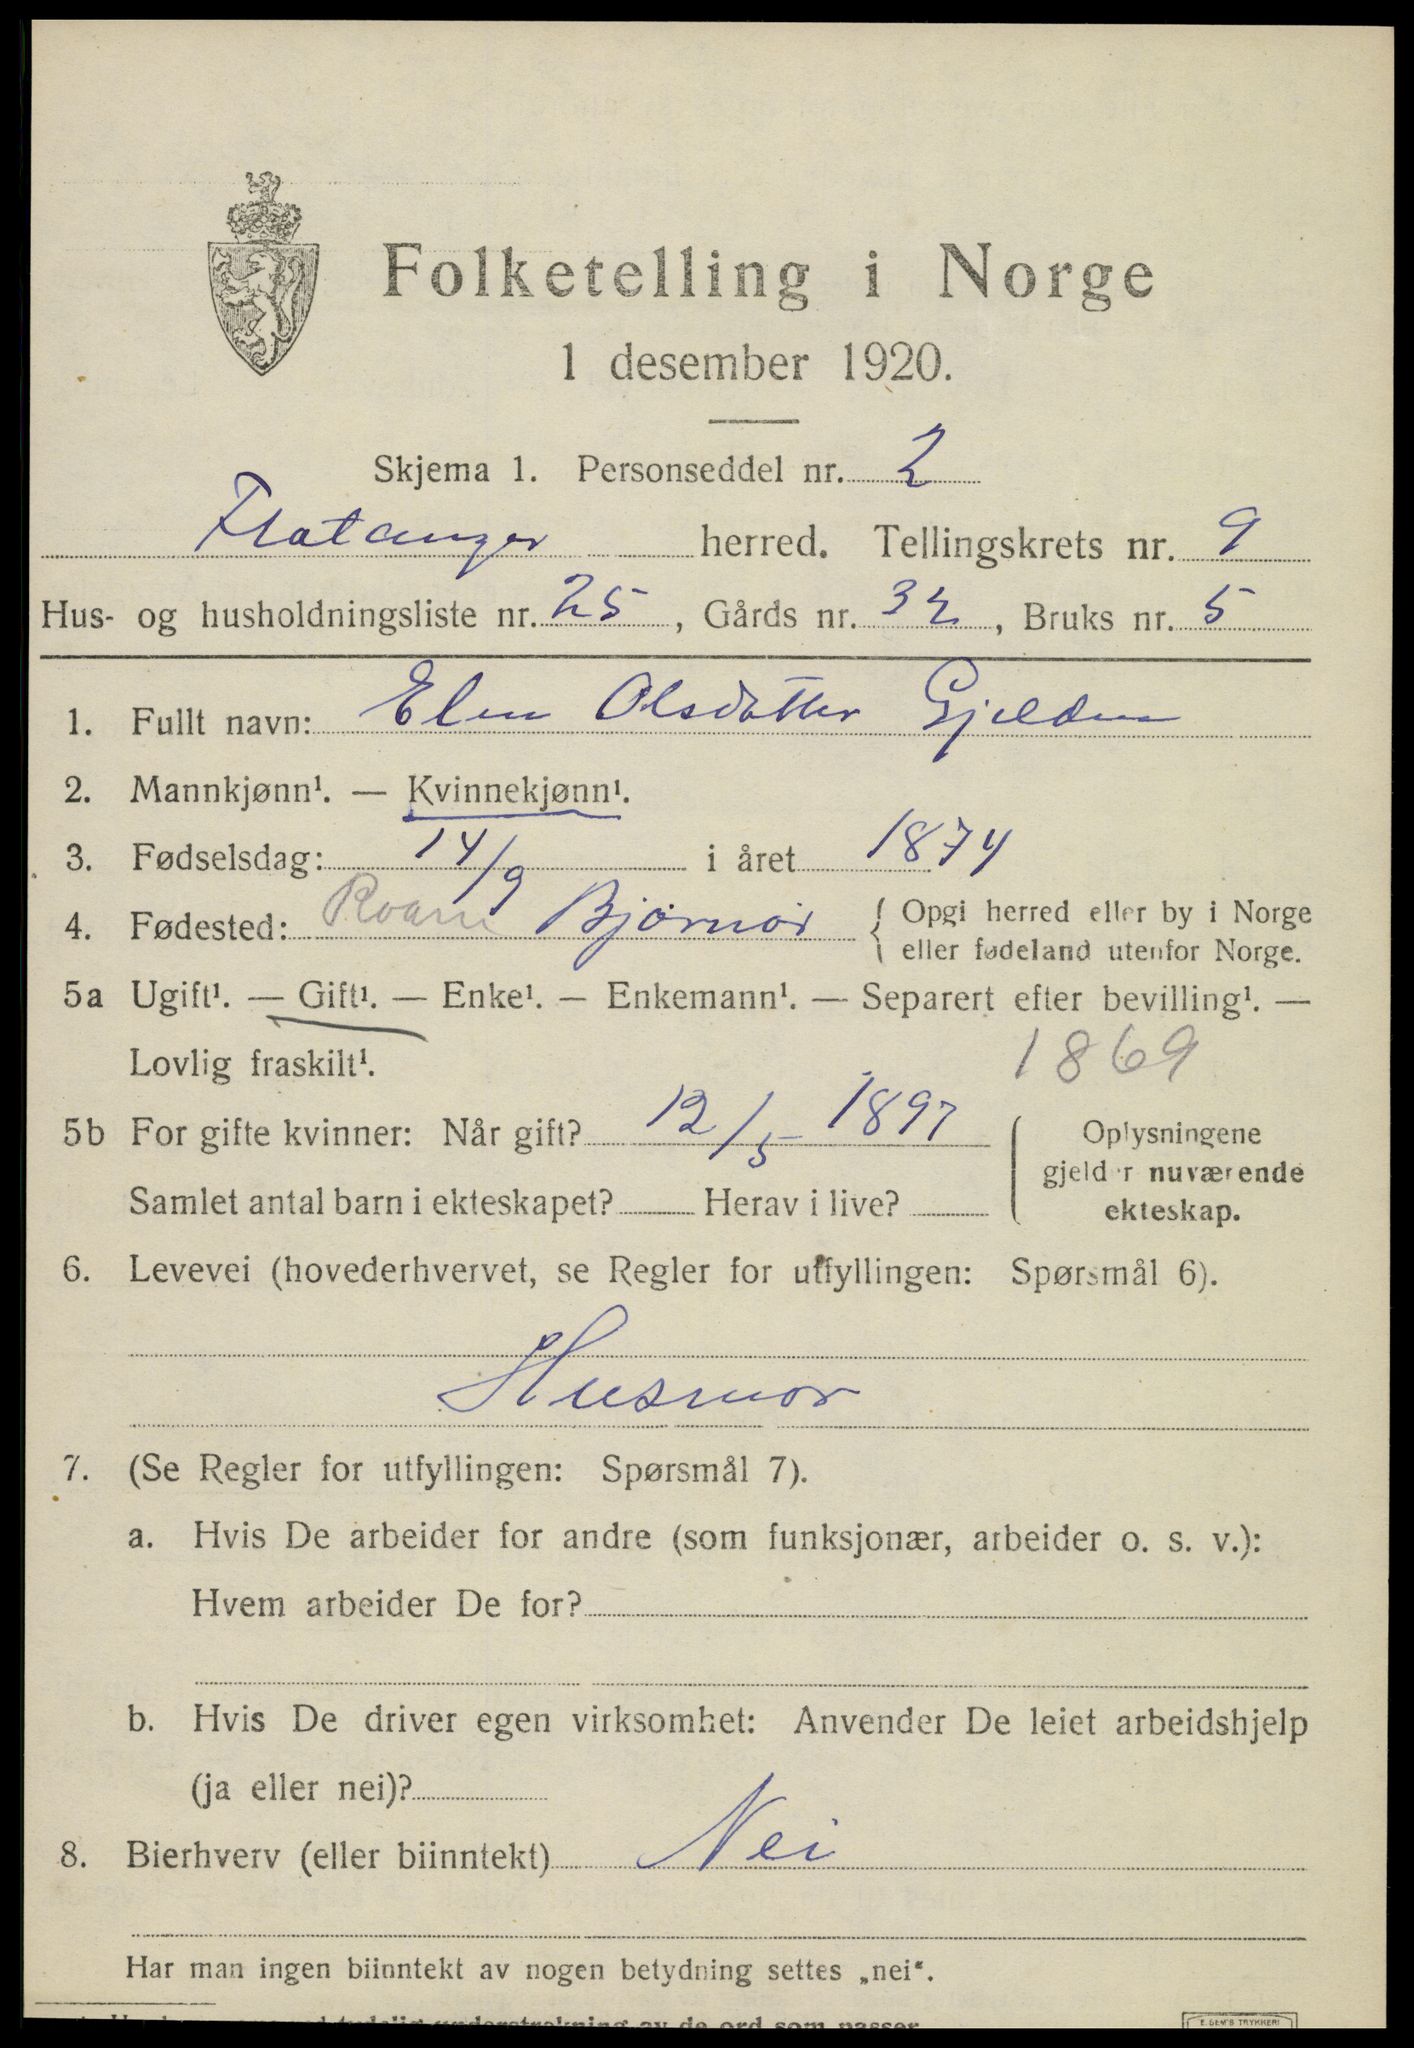 Folketelling i Norge
1 desember 1920.
Skjema 1. Personseddel nr. 2
Flatanger herred. Tellingskrets nr. 9
Hus- og husholdningsliste nr. 25, Gårds nr. 32, Bruks nr. 5
1. Fullt navn: Elen Olsdatter Gjelden
2. Mannkjønn¹. — Kvinnekjønn¹.
3. Fødselsdag: 14/9 i året 1874
4. Fødested: Roan Bjørnør { Opgi herred eller by i Norge
eller fødeland utenfor Norge.
5a Ugift¹. — Gift¹. — Enke¹. — Enkemann¹. — Separert efter bevilling¹. —
Lovlig fraskilt¹. 1869
5b For gifte kvinner: Når gift? 12/5 1897
Samlet antal barn i ekteskapet? Herav i live?
Oplysningene
gjelder nuværende
ekteskap.
6. Levevei (hovederhvervet, se Regler for utfyllingen: Spørsmål 6).
Husmor
7. (Se Regler for utfyllingen: Spørsmål 7).
a. Hvis De arbeider for andre (som funksjonær, arbeider o. s. v.):
Hvem arbeider De for?
b. Hvis De driver egen virksomhet: Anvender De leiet arbeidshjelp
(ja eller nei)?
8. Bierhverv (eller biinntekt) Nei
Har man ingen biinntekt av nogen betydning settes „nei“.
understrekning av de ord som passer